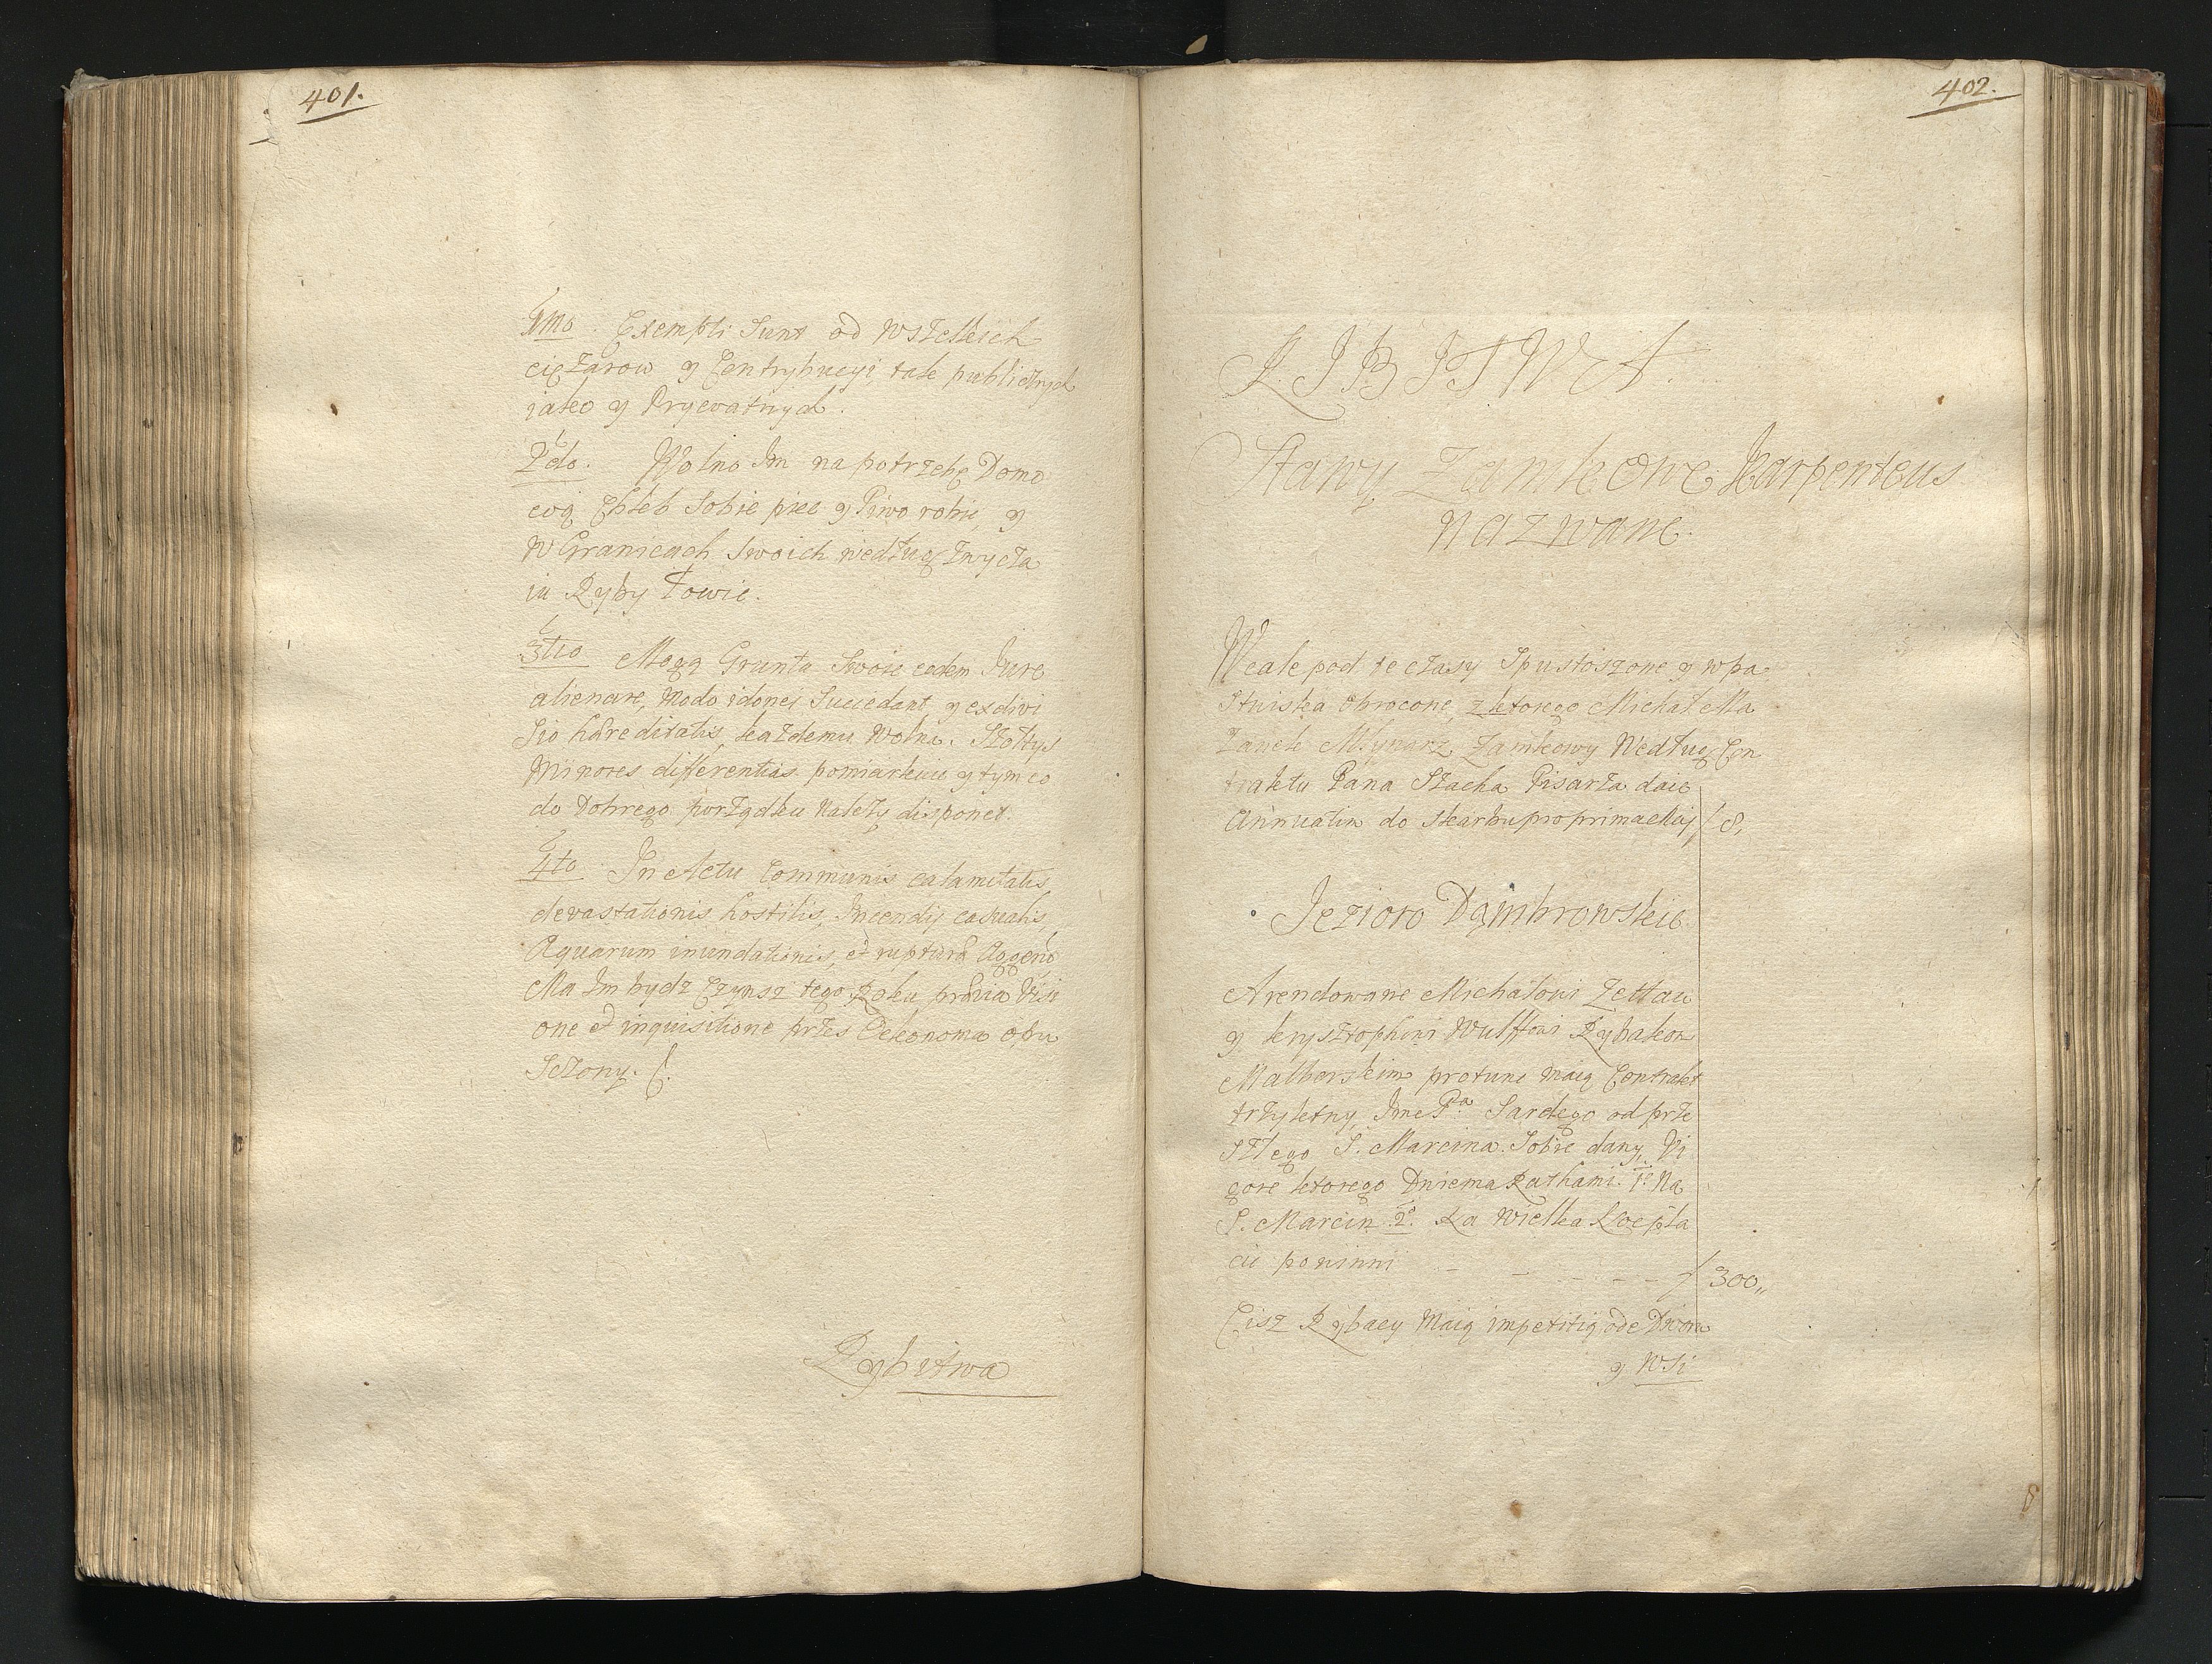 401.
1mo. Exempti Sunt od wszelkich
ciężarow y Contrybucyi tak publicznych
iako y Prywatnych.
2do. Wolno Im na potrzebę Domo
wą Chleb Sobie piec y Piwo robic y
W Granicach Swoich według zwycza
iu Ryby Łowic.
3tio Mogą Grunta Swoie eodem Jure
alienare, modo idonei Succedant, y exdivi
Sio haereditatis każdemu wolna. Szołtys
Minores differentias pomiarkuie y tym co
do Dobrego porządku należy disponet.
4to. In Actu Communis calamitatis,
devastationis hostilis, Incendij casualis,
Aquarum inundationis, et ruptura Aggeru
Ma Im bydz Czynsz tego Roku praevia Visi
one et inquisitione przes Oekonoma opu
Sczony.
Rybitwa
402.
RIBITWA.
Stawy Zamkowe Karpenteus
nazwane.
Wcale pod te czasy Spustoszone y w pa
Stwiska obrocone, z ktorego Michał Ma
Zanek Młynarz Zamkowy Według Con
traktu Pana Szacha Pisarza daie
Annuatim do Skarbu pro prima Maij / 8,,
Jezioro Dąmbrowskie
Arendowane Michałowi Zettau
y krysztophowi Wulffowi Rybakom
Malborskim protunc maią Contrakt
trzyletny, Jme Pa Sardego od prze
szłego S. Marcina Sobie dany, Vi
gore ktorego Dwiema Rathami. 1e Na
S. Marcin 2o. Na Wielka Noc pła
cic powinni - - - - - / 300,,
Cisz Rybacy Maią impetitią ode Dwor
y WSi